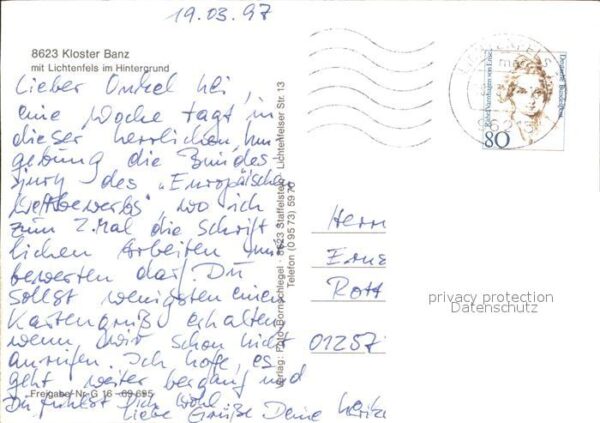 19.03.97
8623 Kloster Banz
mit Lichtenfels im Hintergrund
Lieber Onkel
eine Woche tagt in
dieser herrlichen Um
gebung die Bundes
jury des „Europäischen
Wettbewerbs", wo ich
zum 2. Mal die schrift
lichen Arbeiten mit
bewerten darf. Du
sollst wenigstens einen
Kartengruß erhalten,
wenn wir schon nicht
anrufen. Ich hoffe, es
geht weiter bergauf und
Du fühlst Dich wohl.
Liebe Grüße Deine
Freigabe-Nr. G 16 - 69 695
Verlag: Foto-Bornschlegel · 8623 Staffelstein · Lichtenfelser Str. 13
Telefon (0 95 73) 59 70
Deutsche Bundespost
Rahel Varnhagen von Ense
80
96215
Herrn
Rott
01257
privacy protection
Datenschutz